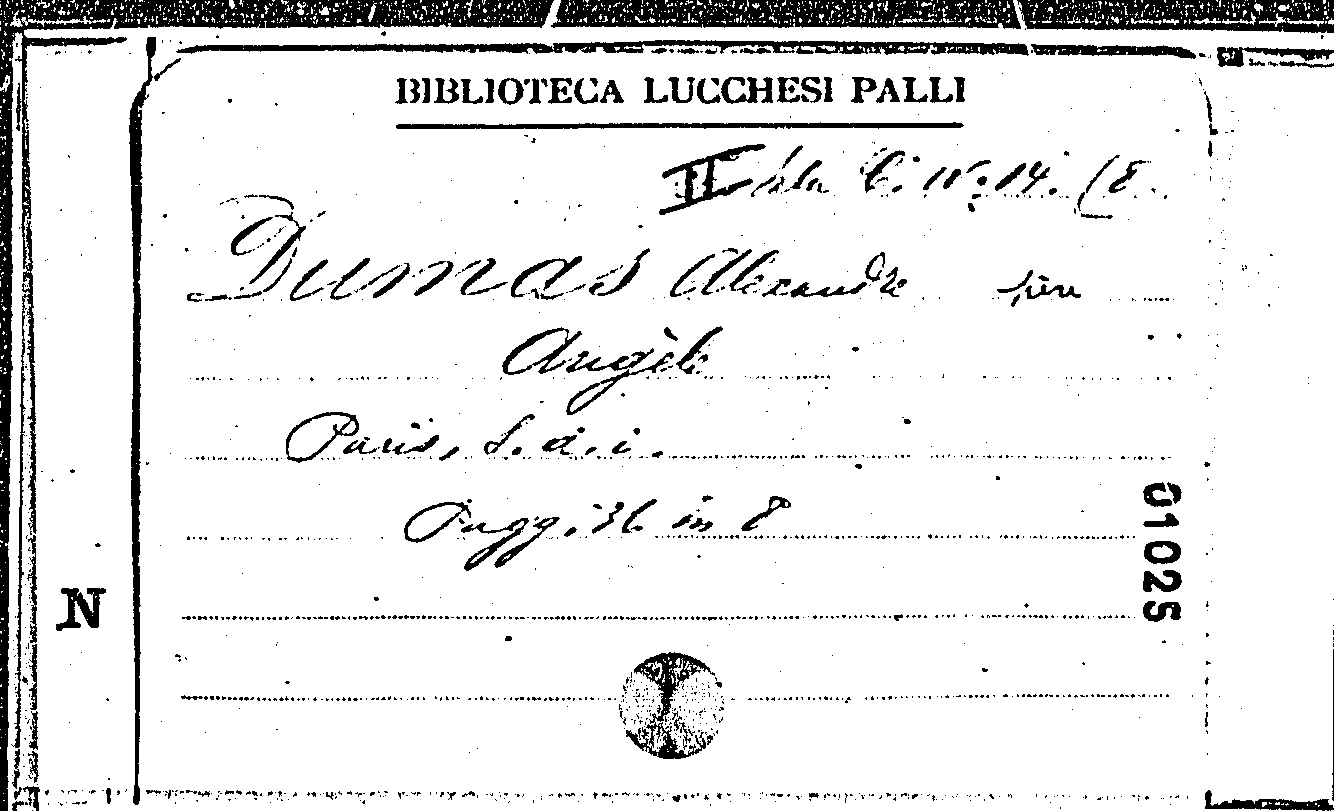 BIBLIOTECA LUCCHESI PALLI
II Sala C. IV. 14. (8.
Dumas Alexandre père
Angèle
Paris, S. d. i.
Pagg. 36 in 8°
01025
N